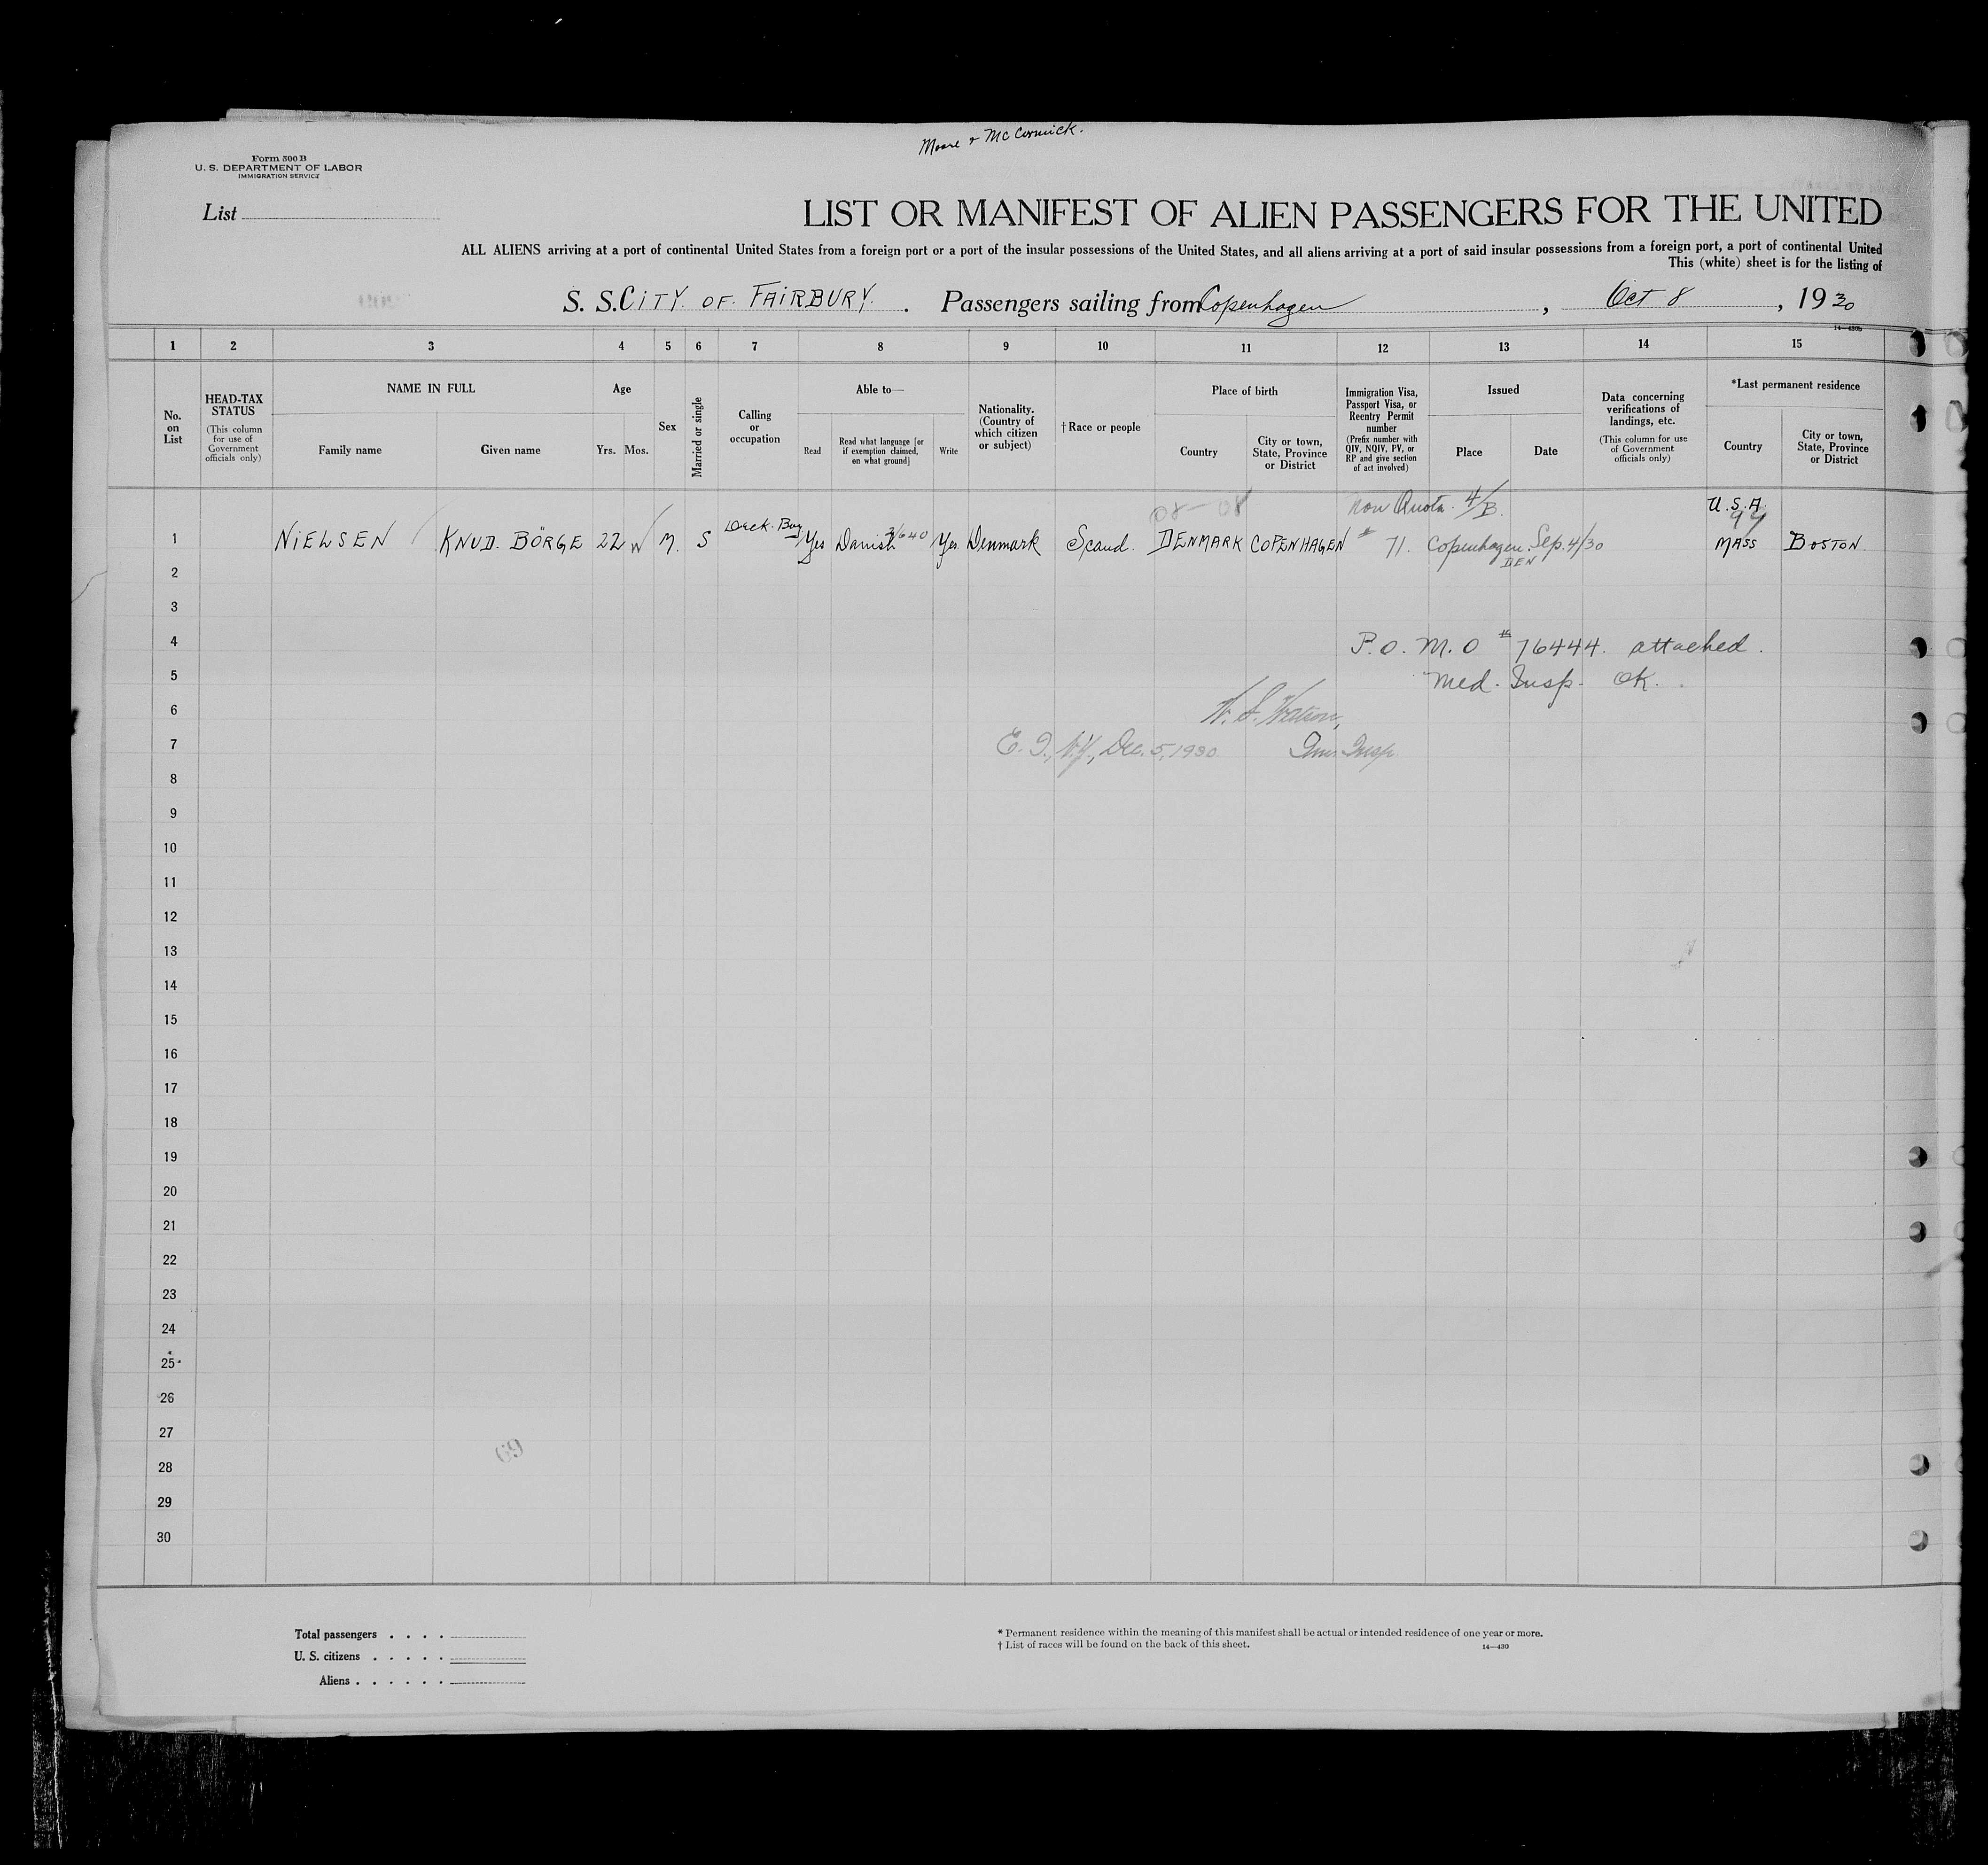 Moore & McCormick.
Form 500 B
U. S. DEPARTMENT OF LABOR
IMMIGRATION SERVICE
List
LIST OR MANIFEST OF ALIEN PASSENGERS FOR THE UNITED
ALL ALIENS arriving at a port of continental United States from a foreign port or a port of the insular possessions of the United States, and all aliens arriving at a port of said insular possessions from a foreign port, a port of continental United
This (white) sheet is for the listing of
S. S. CITY OF FAIRBURY. Passengers sailing from Copenhagen, Oct 8, 1930
14—430b
1 2 3 4 5 6 7 8 9 10 11 12 13 14 15
No. on List
HEAD-TAX STATUS
(This column for use of Government officials only)
NAME IN FULL
Family name Given name
Age
Yrs. Mos.
Sex
Married or single
Calling or occupation
Able to—
Read
Read what language [or if exemption claimed, on what ground]
Write
Nationality. (Country of which citizen or subject)
†Race or people
Place of birth
Country
City or town, State, Province or District
Immigration Visa, Passport Visa, or Reentry Permit number
(Prefix number with QIV, NQIV, PV, or RP and give section of act involved)
Issued
Place Date
Data concerning verifications of landings, etc.
(This column for use of Government officials only)
*Last permanent residence
Country
City or town, State, Province or District
08—08 Non Quota 4/B. U.S.A.
99
1 NIELSEN KNUD. BÖRGE 22 W M. S Deck. Boy Yes Danish Yes Denmark Scand. DENMARK COPENHAGEN # 71. Copenhagen. Sep. 4/30 MASS BOSTON.
DEN
2
3
4 P.O. M.O #76444. attached.
5 Med. Insp. OK.
6 W. S. Watson,
7 E. I., N.Y., Dec. 5, 1930. Imm. Insp.
8
9
10
11
12
13
14
15
16
17
18
19
20
21
22
23
24
25
26
27
28
69
29
30
Total passengers . . . .
U. S. citizens . . . . .
Aliens . . . . . .
* Permanent residence within the meaning of this manifest shall be actual or intended residence of one year or more.
† List of races will be found on the back of this sheet.
14—430